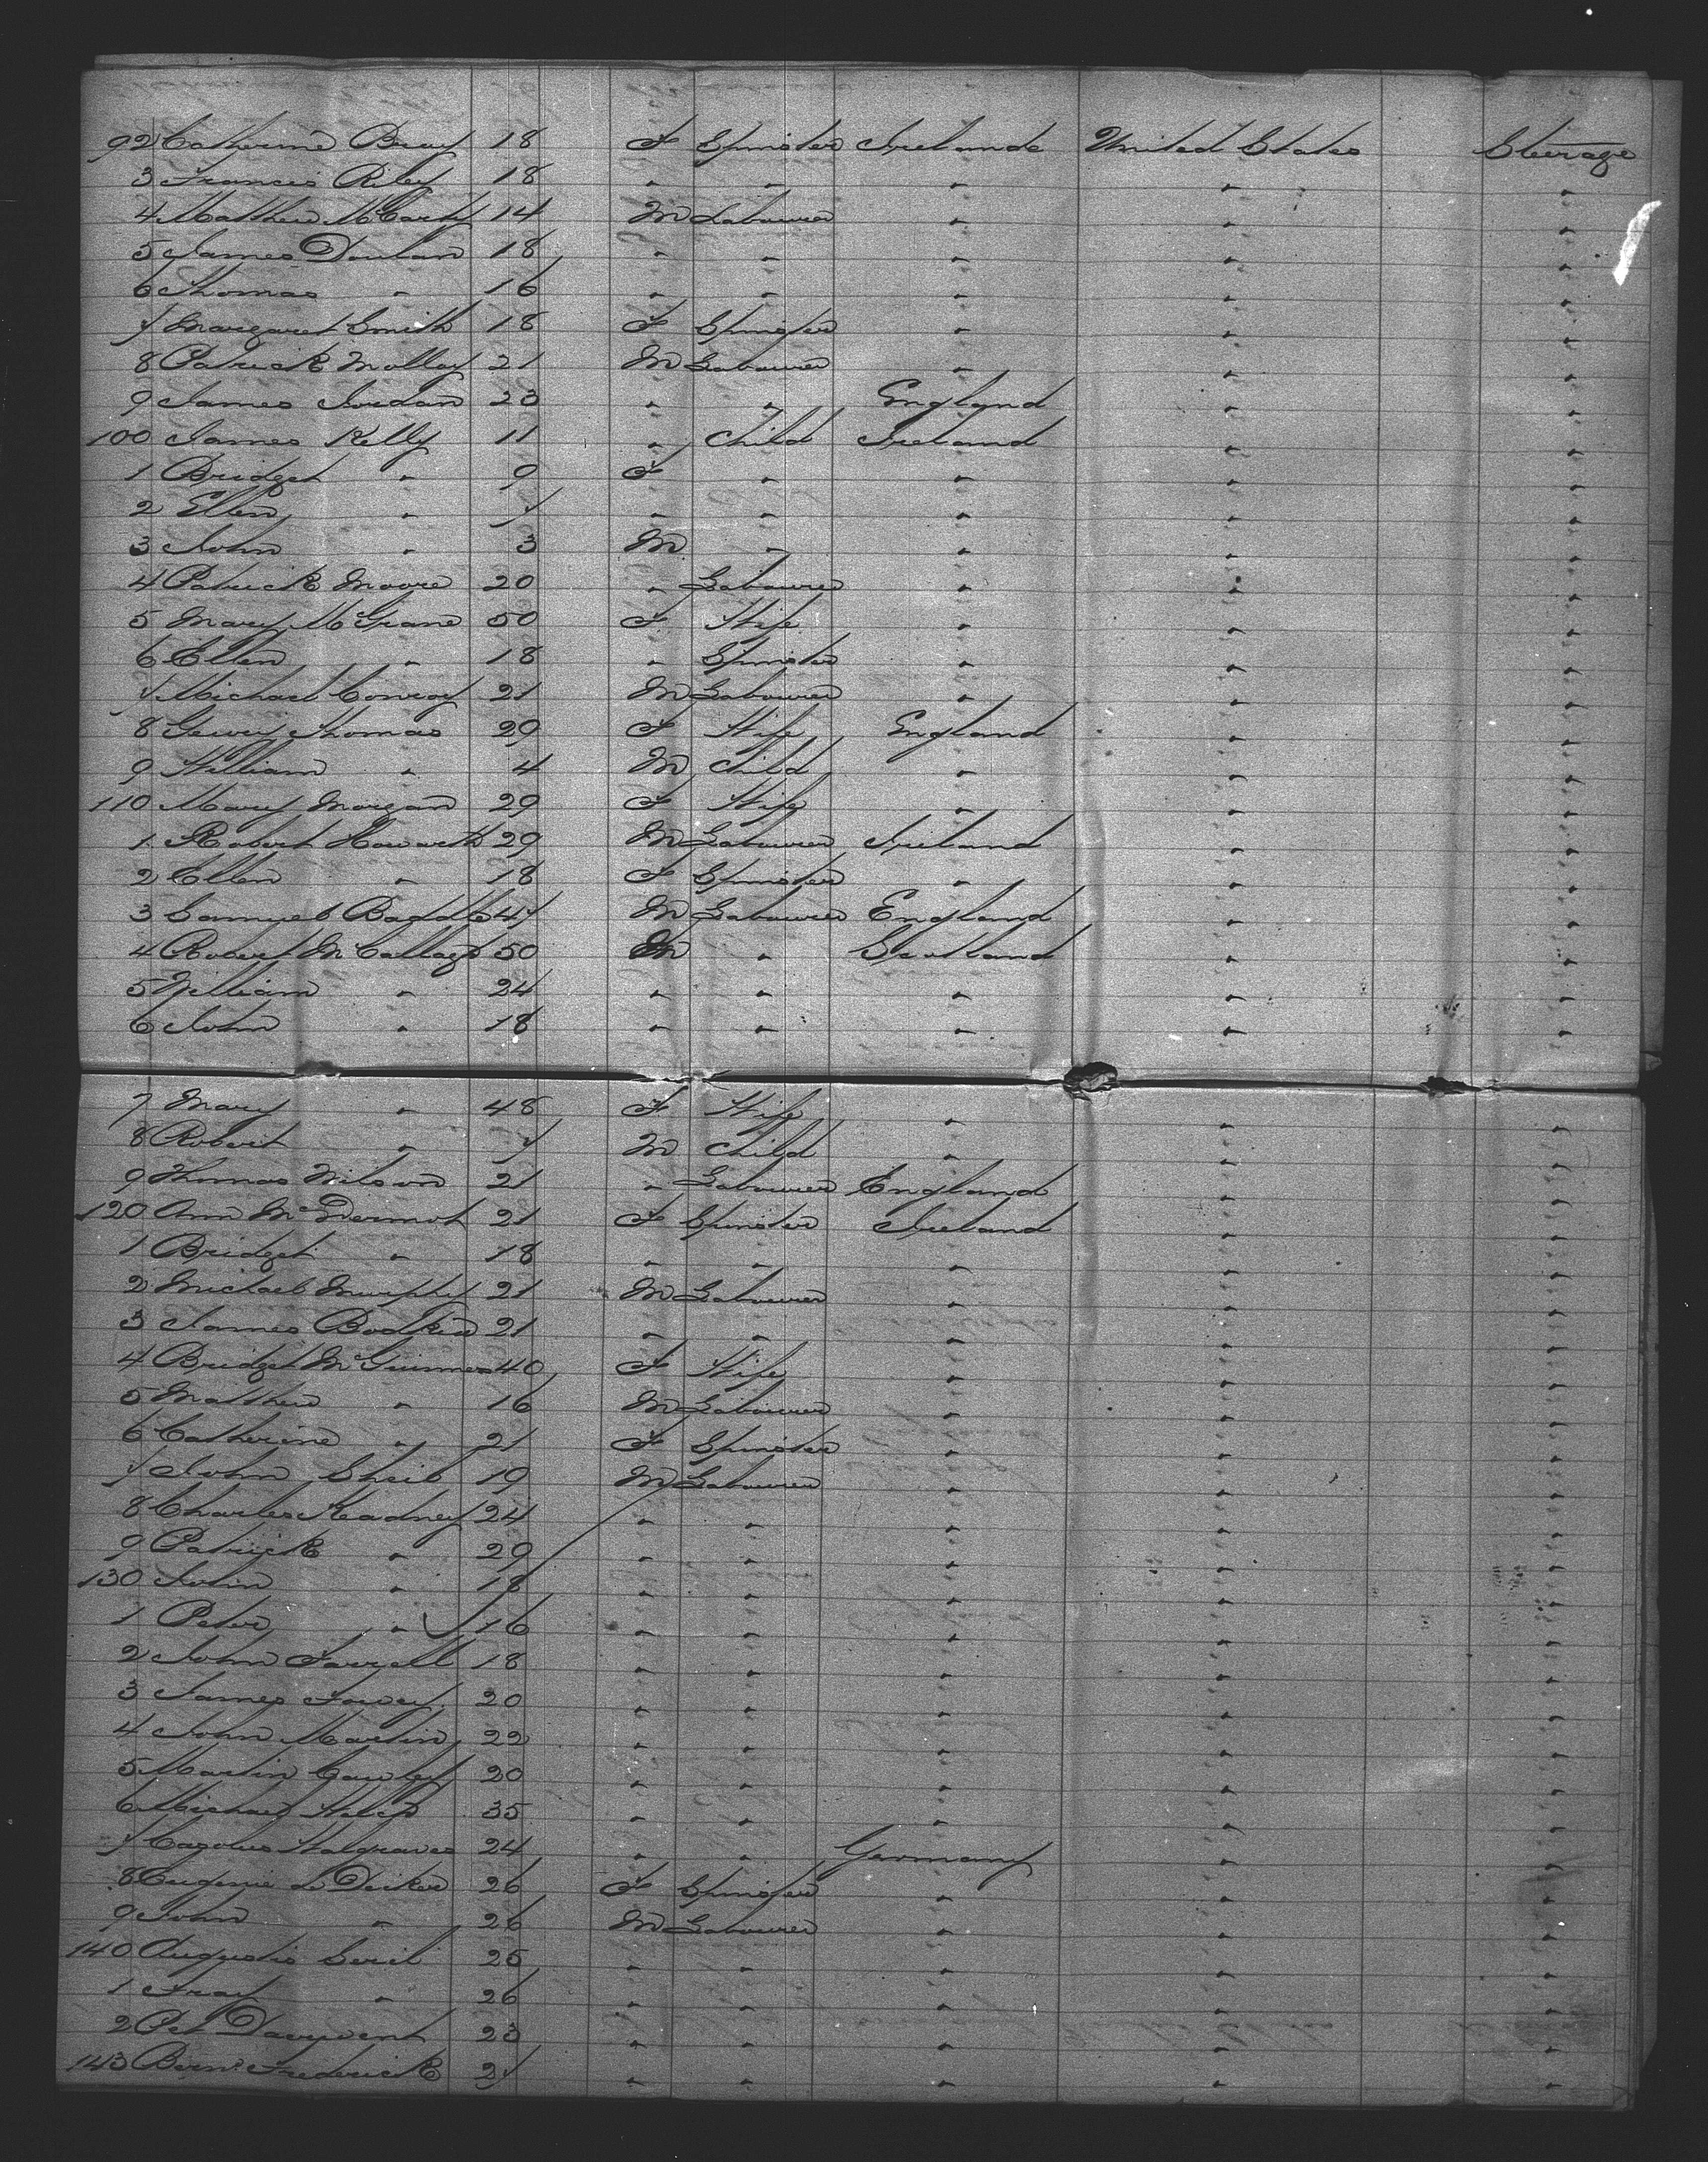 92 Catherine Bray 18 F Spinster Ireland United States Steerage
3 Francis Riley 18 " " " " "
4 Matthew McCarty 14 M Labourer " " "
5 James Doulan 18 " " " " "
6 Thomas " 16 " " " " "
7 Margaret Smith 18 F Spinster " " "
8 Patrick Molloy 21 M Labourer " " "
9 James Jordan 23 " " England " "
100 James Kelly 11 " Child Ireland " "
1 Bridget " 9 F " " " "
2 Ellen " 7 " " " " "
3 John " 3 M " " " "
4 Patrick Moore 20 " Labourer " " "
5 Mary McGrane 50 F Wife " " "
6 Ellen " 18 " Spinster " " "
7 Michael Conroy 21 M Labourer " " "
8 Thomas 29 F Wife England " "
9 William " 4 M Child " " "
110 Mary Morgan 29 F Wife " " "
1 Robert Howarth 29 M Labourer Ireland " "
2 Ellen " 18 F Spinster " " "
3 Samuel 47 M Labourer England " "
4 Robert 50 M " Scotland " "
5 William " 24 " " " " "
6 John " 18 " " " " "
7 Mary " 48 F Wife " " "
8 Robert " 7 M Child " " "
9 Thomas Wilson 21 " Labourer England " "
120 Ann McDermot 21 F Spinster Ireland " "
1 Bridget " 18 " " " " "
2 Michael Murphy 21 M Labourer " " "
3 James Bodkin 21 " " " " "
4 Bridget McGuinness 40 F Wife " " "
5 Matthew " 16 M Labourer " " "
6 Catherine " 21 F Spinster " " "
7 John Sheil 19 M Labourer " " "
8 Charles Keadney 24 " " " " "
9 Patrick " 29 " " " " "
130 John " 18 " " " " "
1 Peter " 16 " " " " "
2 John Farrell 18 " " " " "
3 James 20 " " " " "
4 John Martin 22 " " " " "
5 Martin Cawley 20 " " " " "
6 Michael 35 " " " " "
7 24 " " Germany " "
8 Eugenie De Decker 26 F Spinster " " "
9 John " 26 M Labourer " " "
140 25 " " " " "
1 " 26 " " " " "
2 Pet 23 " " " " "
143 Frederick 27 " " " " "